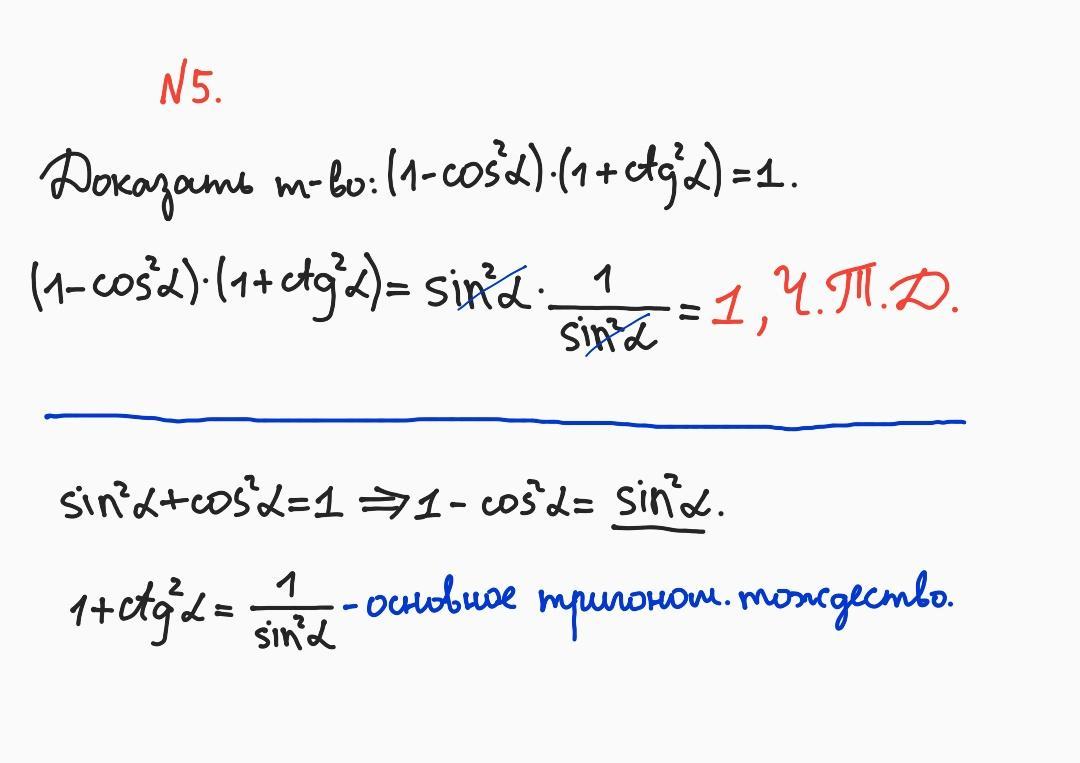 N5.
Доказать т-во: (1-cos²α)·(1+ctg²α)=1.
(1-cos²α)·(1+ctg²α)= sin²α · 1/sin²α = 1, Ч.Т.Д.
sin²α+cos²α=1 ⇒ 1 - cos²α= sin²α.
1+ctg²α= 1/sin²α - основное тригоном. тождество.